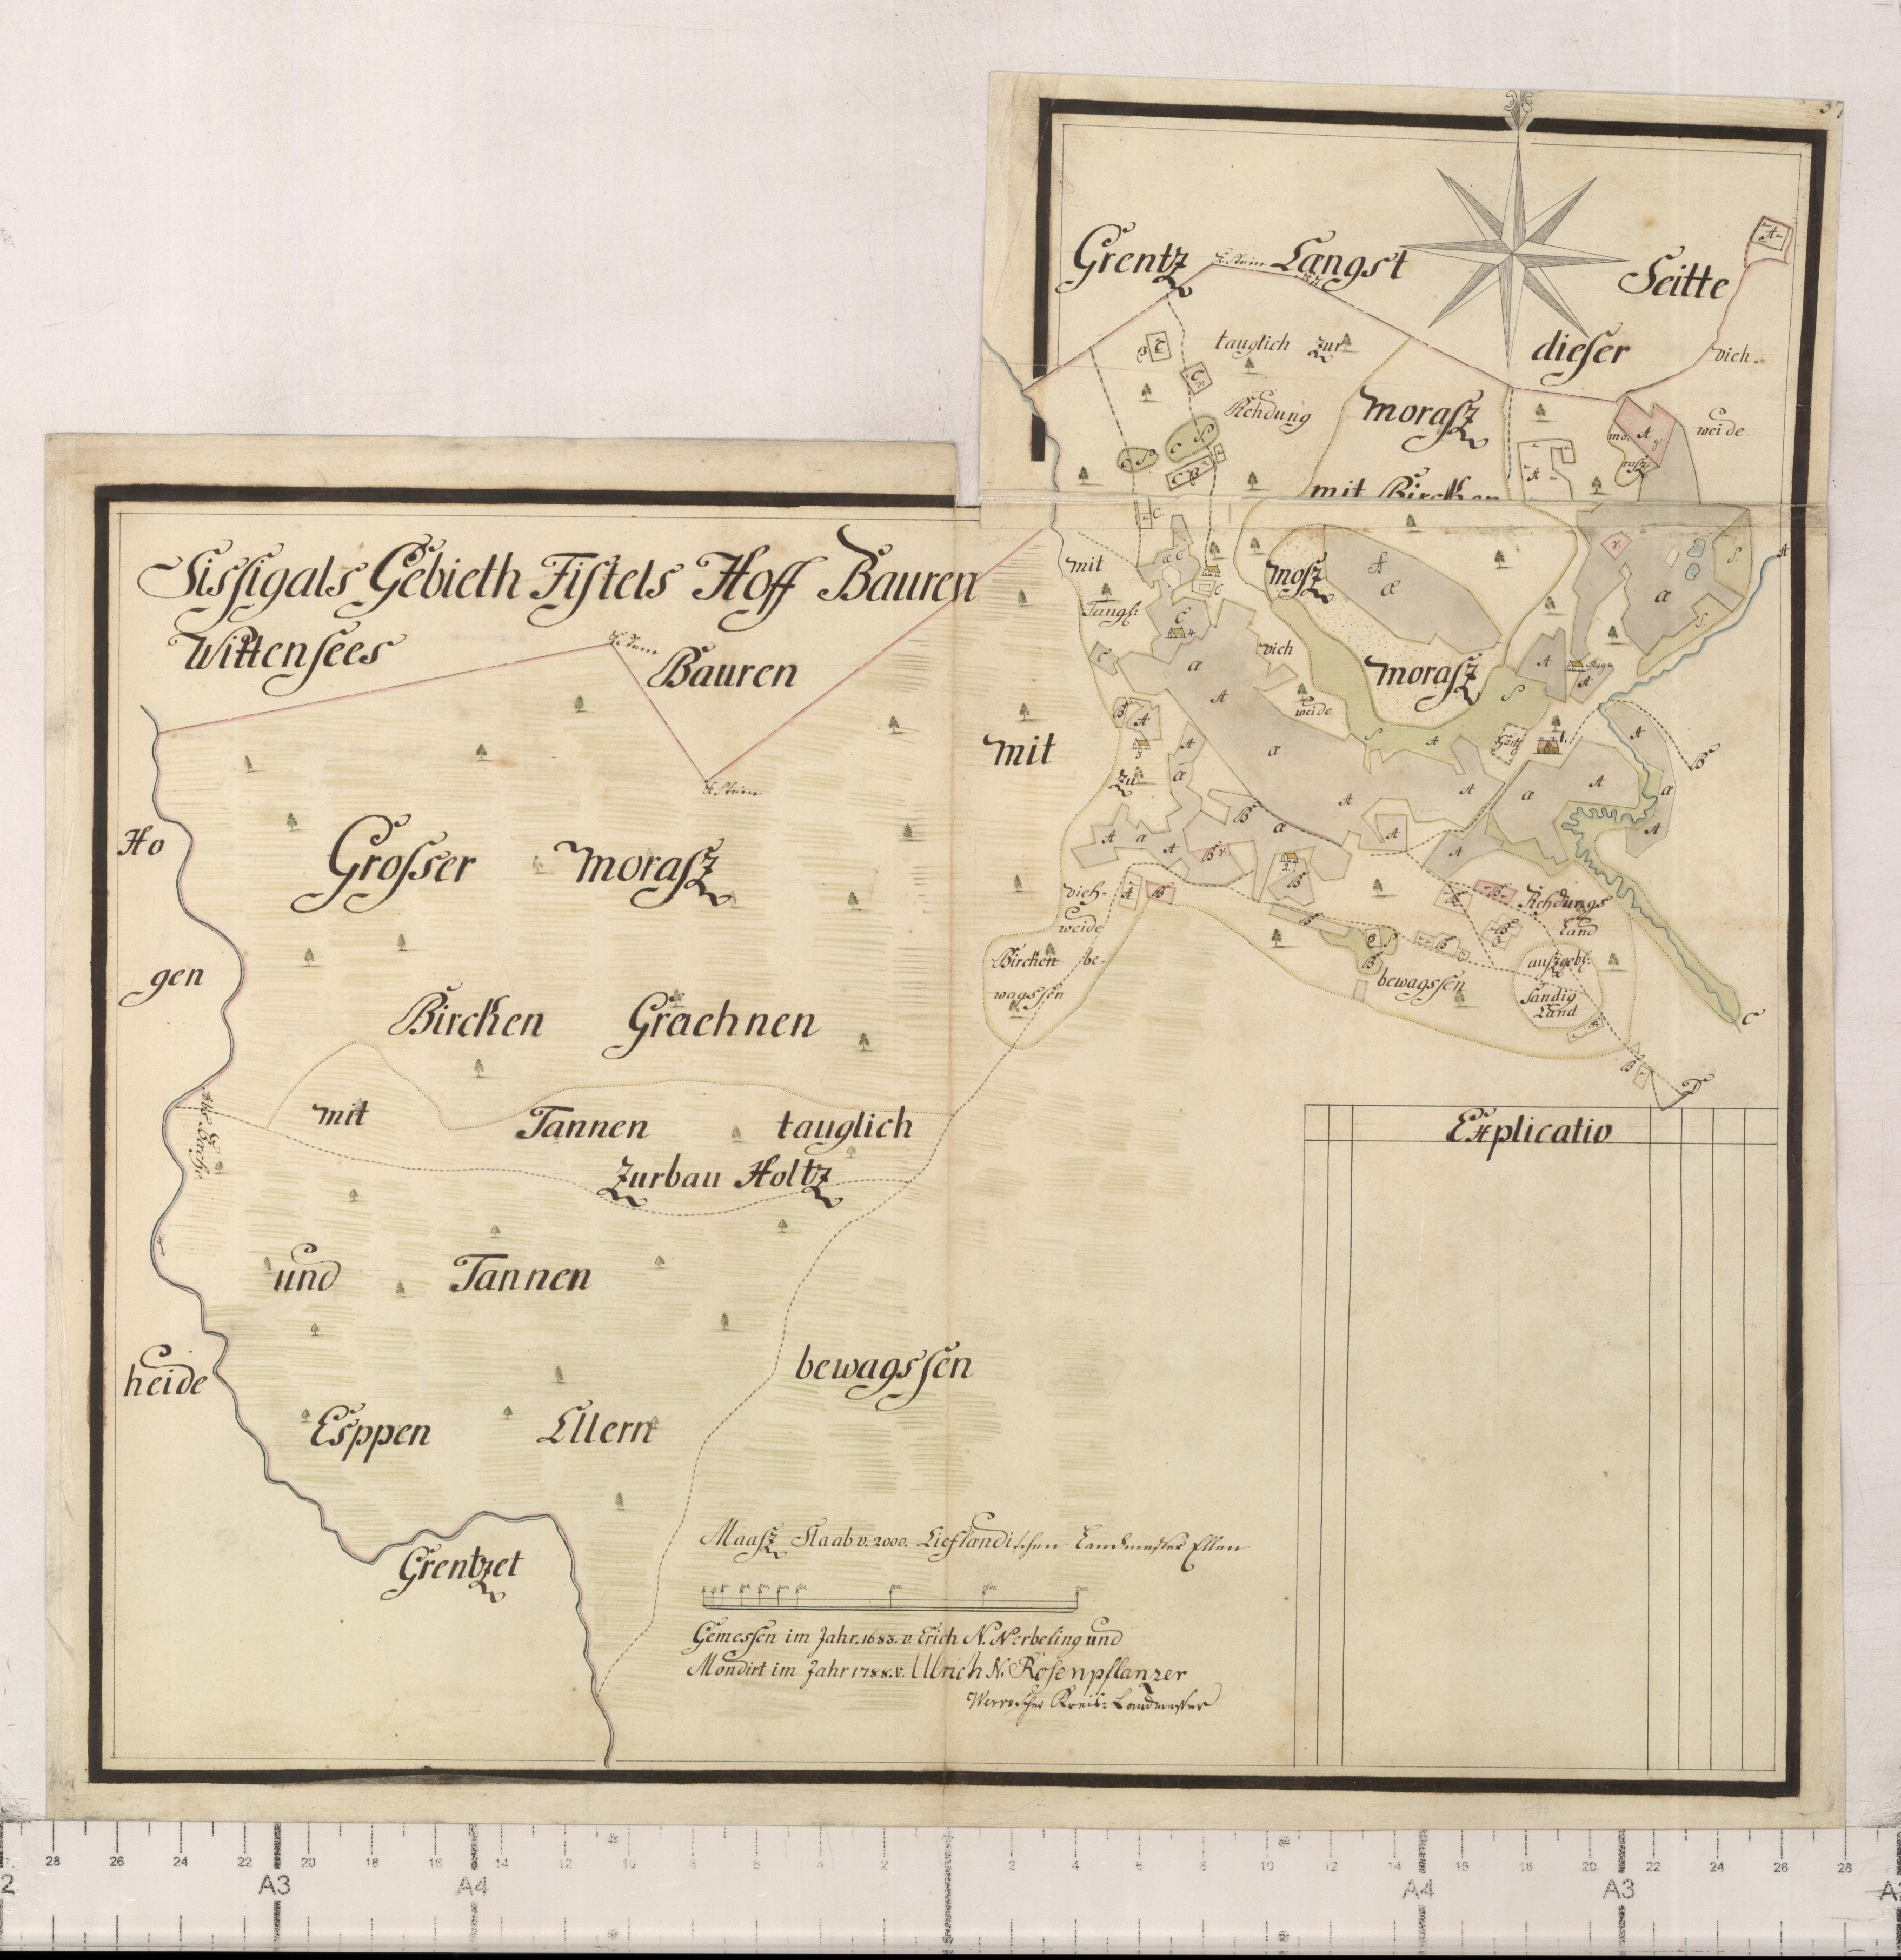 37
Grentz Langst Seitte
dieser
tauglich Zur
Rehdung
Morasz
mit Bircken
vich
weide
mo
rasz
Sissigals Gebieth Fistels Hoff Bauren
Wittensees
K. Stein
Bauren
K. Stein
mit
Tangl:
mosz
vich
weide
morasz
mit
Zu
Gart
Ho
Grosser morasz
vich-
weide
Bircken be-
wagssen
Rehdungs
Land
bewagssen
Sandig
Land
gen
Bircken Graehnen
mit Tannen tauglich
Zurbau Holtz
Explicatio
und Tannen
heide
bewagssen
Esppen Ellern
Grentzet
Maasz Staab v. 2000. Lieflandischen Landmesser Ellen
Gemessen im Jahr. 1683. v. Erich N. Nerbeling und
Mondirt im Jahr 1788. v. Ulrich N. Rosenpflanzer
Werroscher Kreis: Landmesser
28 26 24 22 20 18 16 14 12 10 8 6 4 2 2 4 6 8 10 12 14 16 18 20 22 24 26 28
2 A3 A4 A4 A3